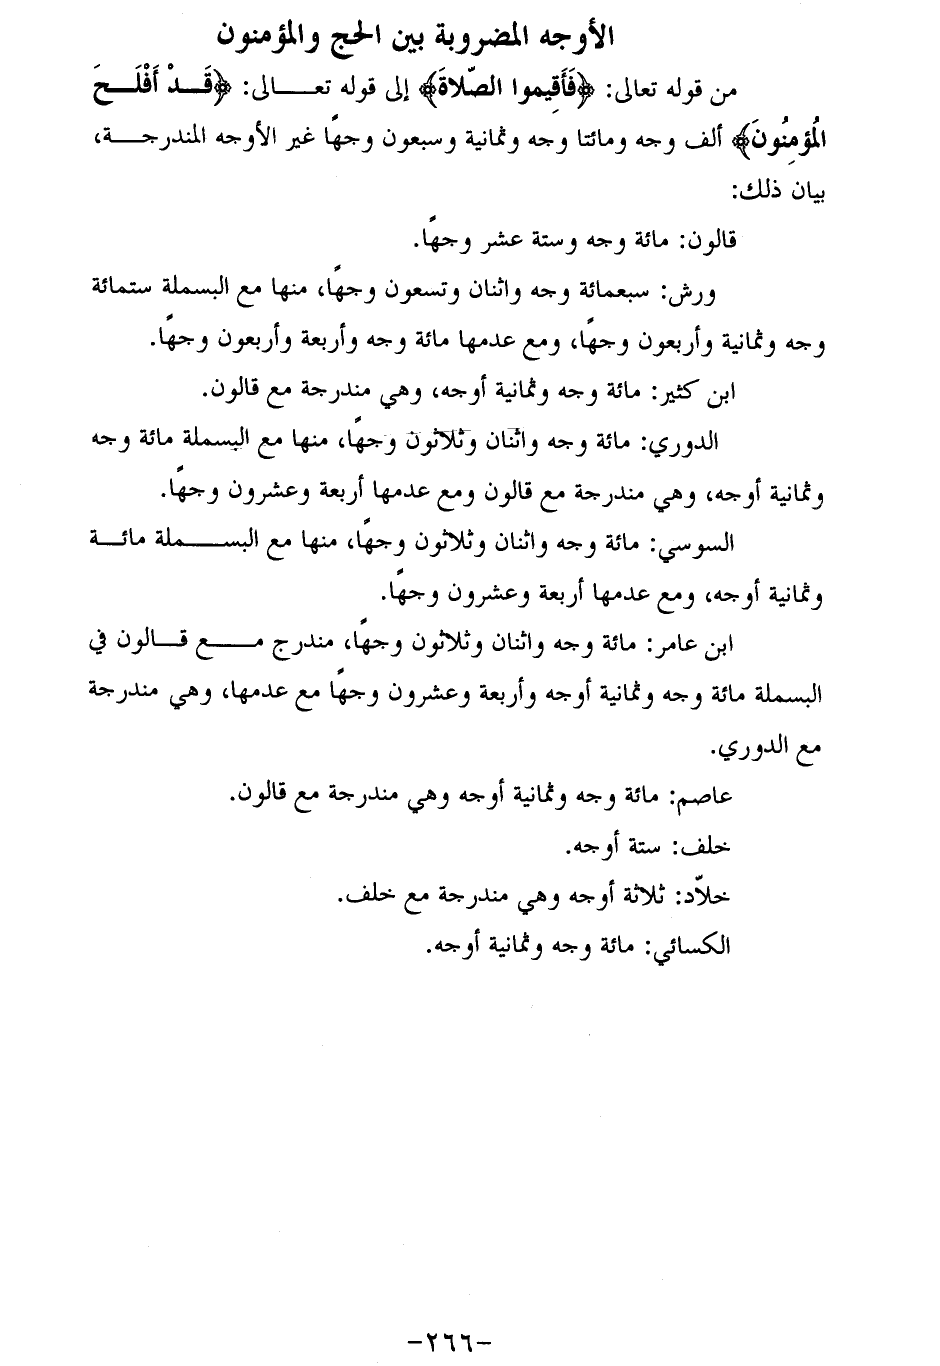 الأوجه المضروبة بين الحج والمؤمنون
من قوله تعالى: ﴿فَأَقِيموا الصّلاةَ﴾ إلى قوله تعالى: ﴿قَدْ أَفْلَحَ
الْمُؤمِنُونَ﴾ ألف وجه ومائتا وجه وثمانية وسبعون وجهًا غير الأوجه المندرجة،
بيان ذلك:
قالون: مائة وجه وستة عشر وجهًا.
ورش: سبعمائة وجه واثنان وتسعون وجهًا، منها مع البسملة ستمائة
وجه وثمانية وأربعون وجهًا، ومع عدمها مائة وجه وأربعة وأربعون وجهًا.
ابن كثير: مائة وجه وثمانية أوجه، وهي مندرجة مع قالون.
الدوري: مائة وجه واثنان وثلاثون وجهًا، منها مع البسملة مائة وجه
وثمانية أوجه، وهي مندرجة مع قالون ومع عدمها أربعة وعشرون وجهًا.
السوسي: مائة وجه واثنان وثلاثون وجهًا، منها مع البسملة مائة
وثمانية أوجه، ومع عدمها أربعة وعشرون وجهًا.
ابن عامر: مائة وجه واثنان وثلاثون وجهًا، مندرج مع قالون في
البسملة مائة وجه وثمانية أوجه وأربعة وعشرون وجهًا مع عدمها، وهي مندرجة
مع الدوري.
عاصم: مائة وجه وثمانية أوجه وهي مندرجة مع قالون.
خلف: ستة أوجه.
خلاّد: ثلاثة أوجه وهي مندرجة مع خلف.
الكسائي: مائة وجه وثمانية أوجه.
-٢٦٦-